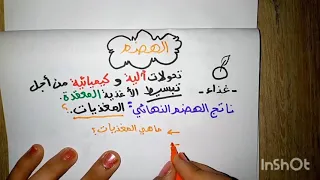 الهضم
تحولات آلية و كيميائية من أجل
- غذاء -
تبسيط الأغذية المعقدة.
ناتج الهضم النهائي: المغذيات.؟
← ماهي المغذيات؟
InShOt